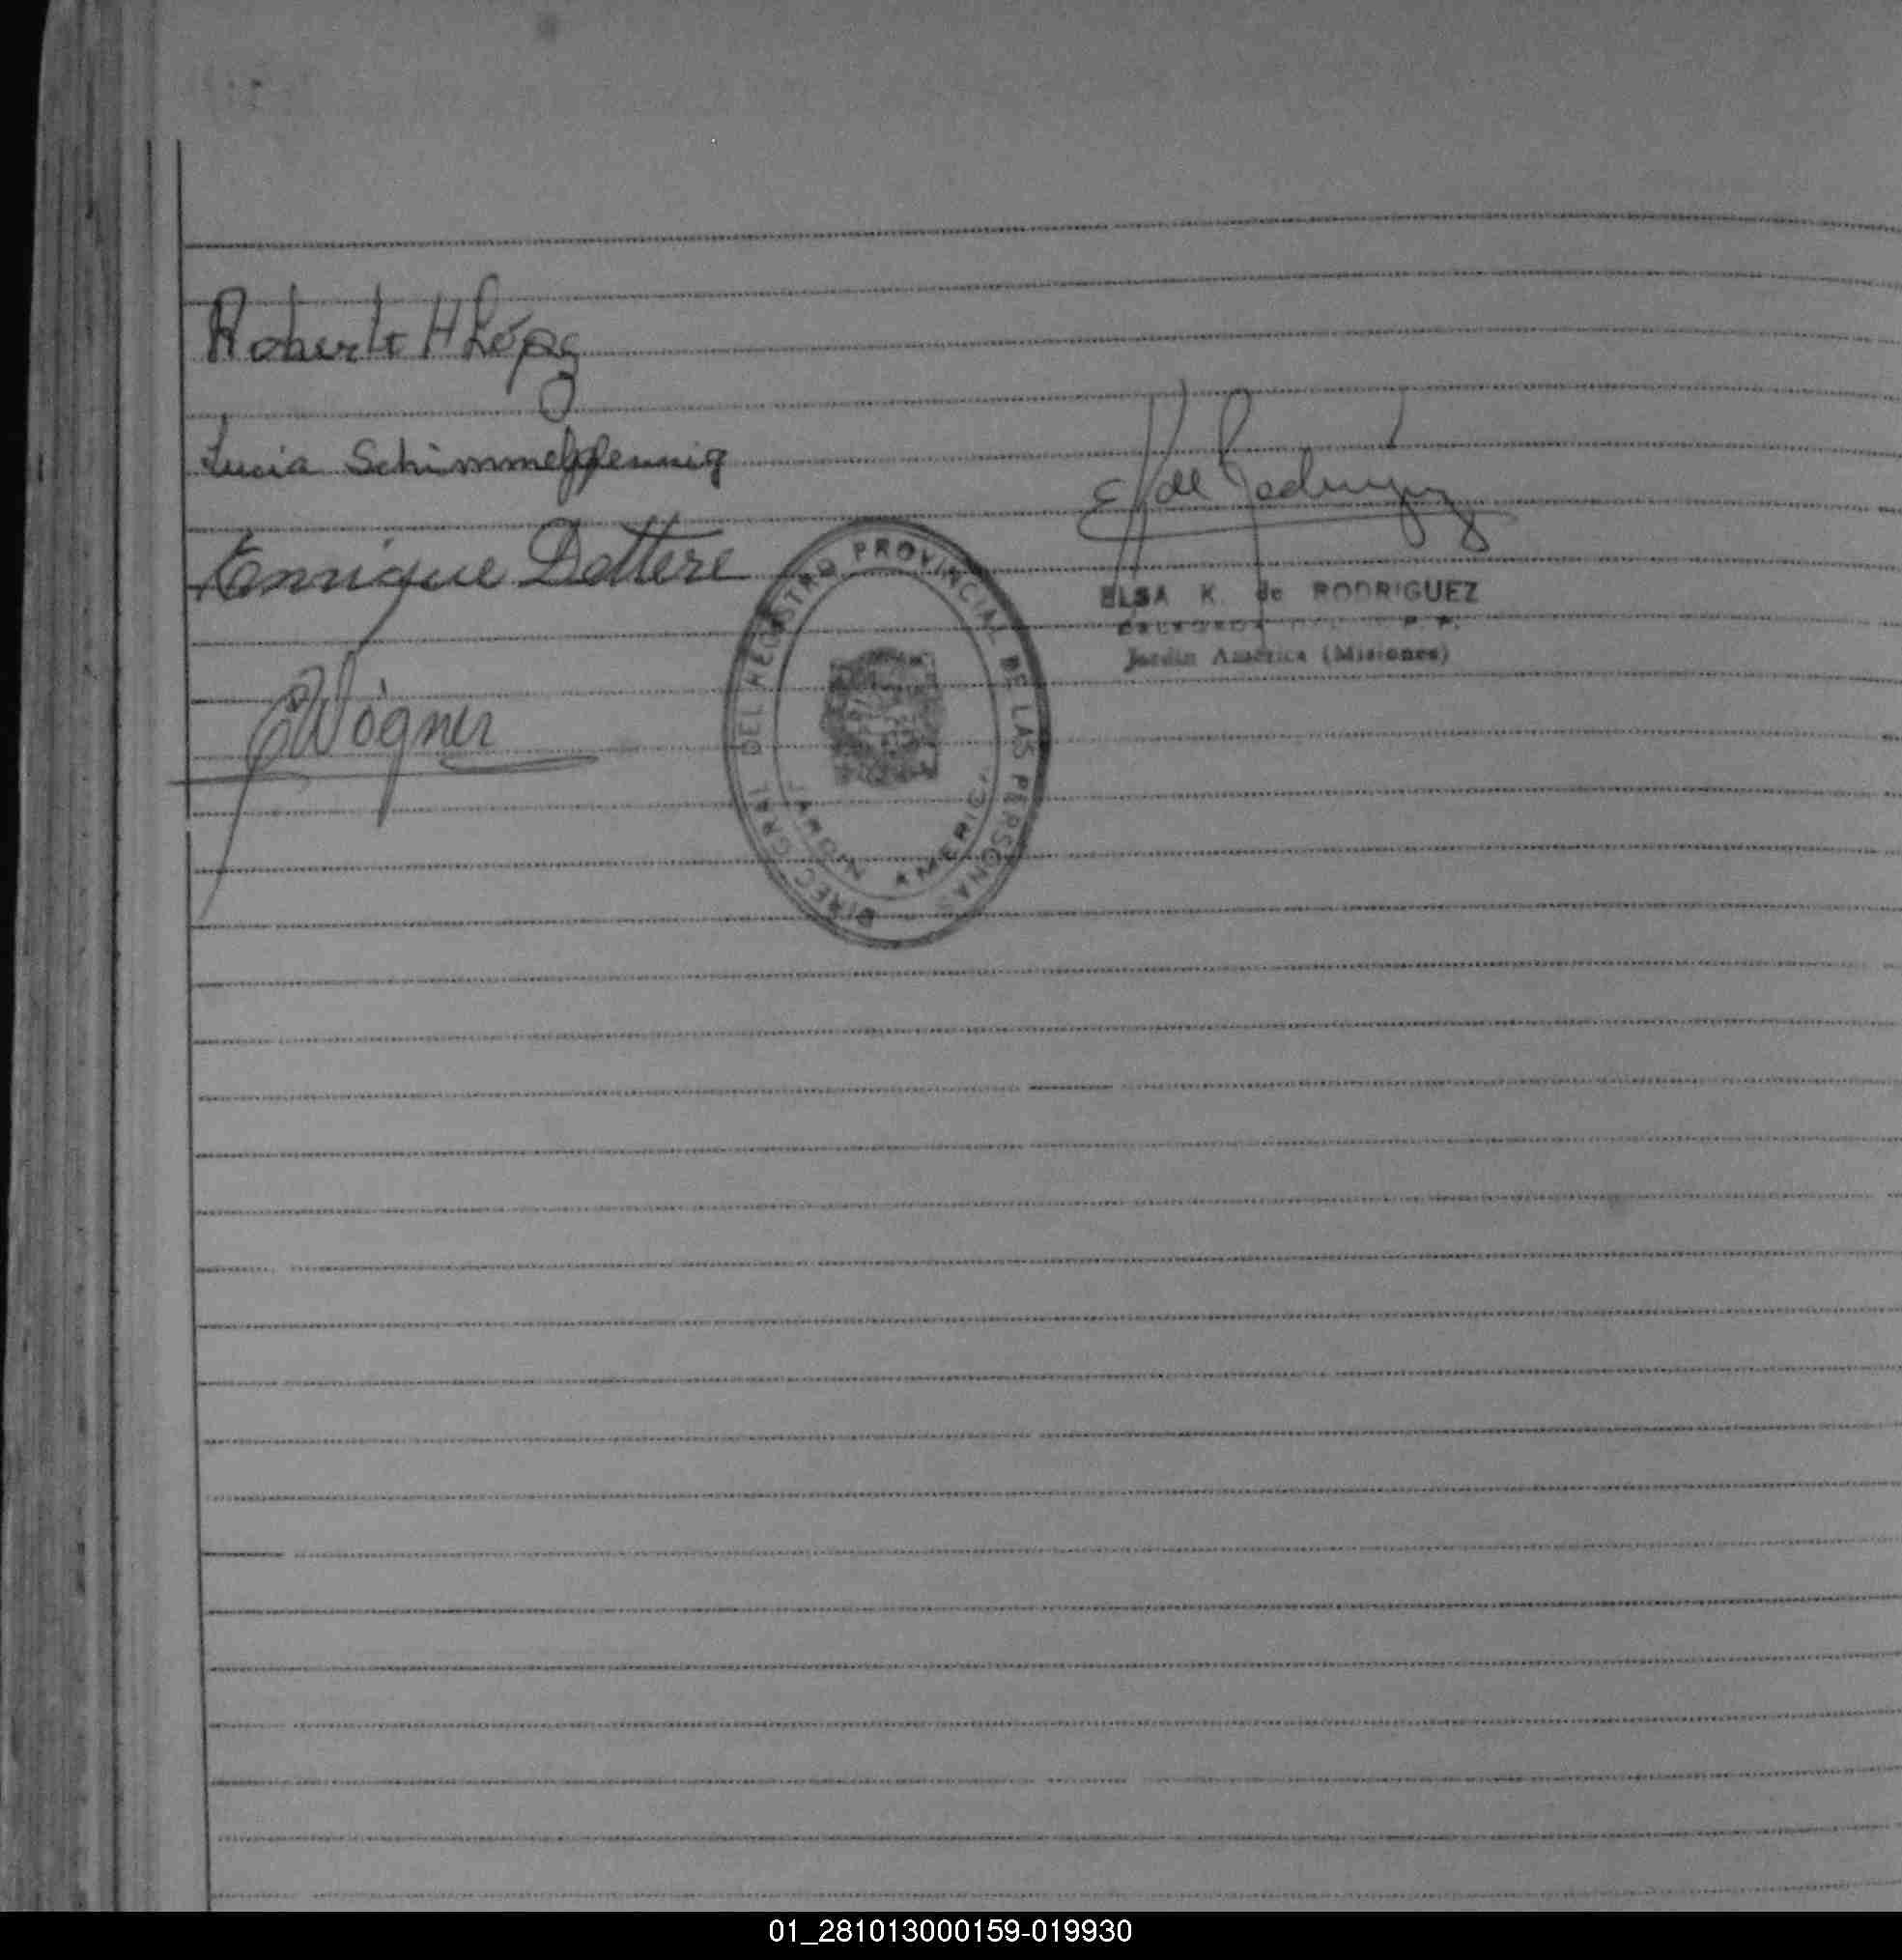 Roberto H López
Lucia Schimmelpfennig
Enrique Dottere
Wagner
E K de Rodriguez
DIREC. GRAL. DEL REGISTRO PROVINCIAL DE LAS PERSONAS
JARDIN AMERICA
ELSA K. de RODRIGUEZ
Jardín América (Misiones)
01_281013000159-019930